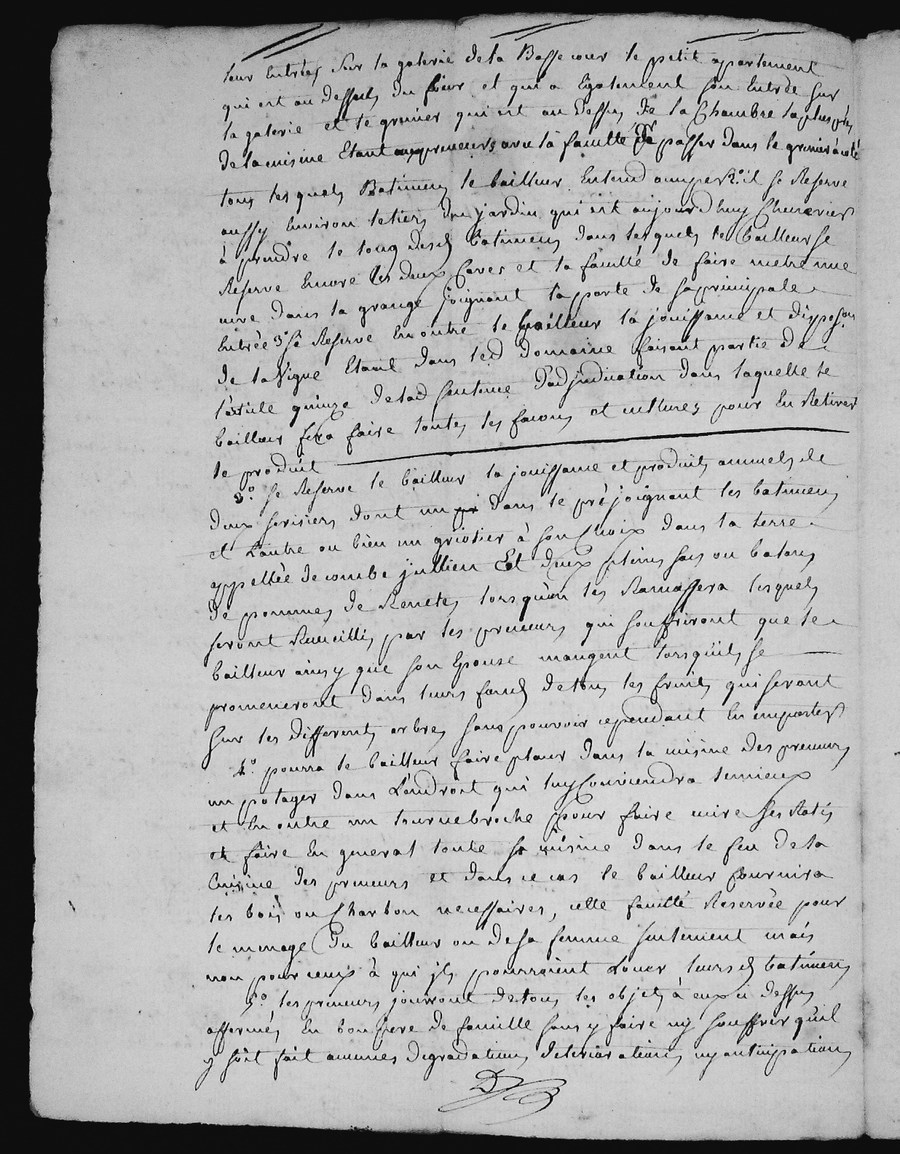 leur Entrées sur la galerie de la Basse cour le petit apartement
qui est au dessus du four et qui a Egalement son Entrée sur
la galerie et le grenier qui est au dessus de la Chambre la plus près
de la cuisine Etant aux preneurs avec la faculté de passer dans le grenier à coté
tous lesquels Batimens le bailleur Entend 2.° il se Reserve
aussy Environ le tiers du jardin qui est aujourd'huy Chenevier
à prendre le long desd batimens dans lesquels le bailleur se
Reserve Encore les deux Caves et la faculté de faire metre une
cuve dans la grange joignant la porte de sa principale
Entrée 3° se Reserve En outre le bailleur la jouissance et disposon
de la vigne Etant dans led domaine faisant partie de
l'article quinze de lad sentence d'adjudication dans laquelle le
bailleur fera faire toutes les façons et cultures pour En Retirer
le produit
3.° se Reserve le bailleur la jouissance et produits annuels de
deux serisiers dont un dans le pré joignant les batimens
et l'autre ou bien un griotier à son choix dans la terre
appellée de combe jullien Et deux pleins sacs ou
de pommes de Renetes lorsqu'on les Ramassera lesquels
seront Recueillis par les preneurs qui souffriront que le
bailleur ainsy que son Epouse mangent lorsqu'ils se
promeneront dans leurs fonds de tous les fruits qui seront
sur les differents arbres sans pouvoir cependant En emporter
4.° pourra le bailleur faire placer dans la cuisine des preneurs
un potager dans L'endroit qui luy Conviendra le mieux
et En outre un tournebroche pour faire cuire ses Rotis
et faire En general toute sa cuisine dans le feu de la
Cuisine des preneurs et dans ce cas le bailleur fournira
les bois ou Charbon necessaires, cette faculté Reservée pour
le menage Du bailleur ou de sa femme seulement mais
non pour ceux à qui ils pourroient Louer leursd batimens
5.° les preneurs jouiront de tous les objets à eux ci dessus
affermés En bon pere de famille sans y faire ny souffrir qu'il
y soit fait aucunes degradations deteriorations ny anticipations